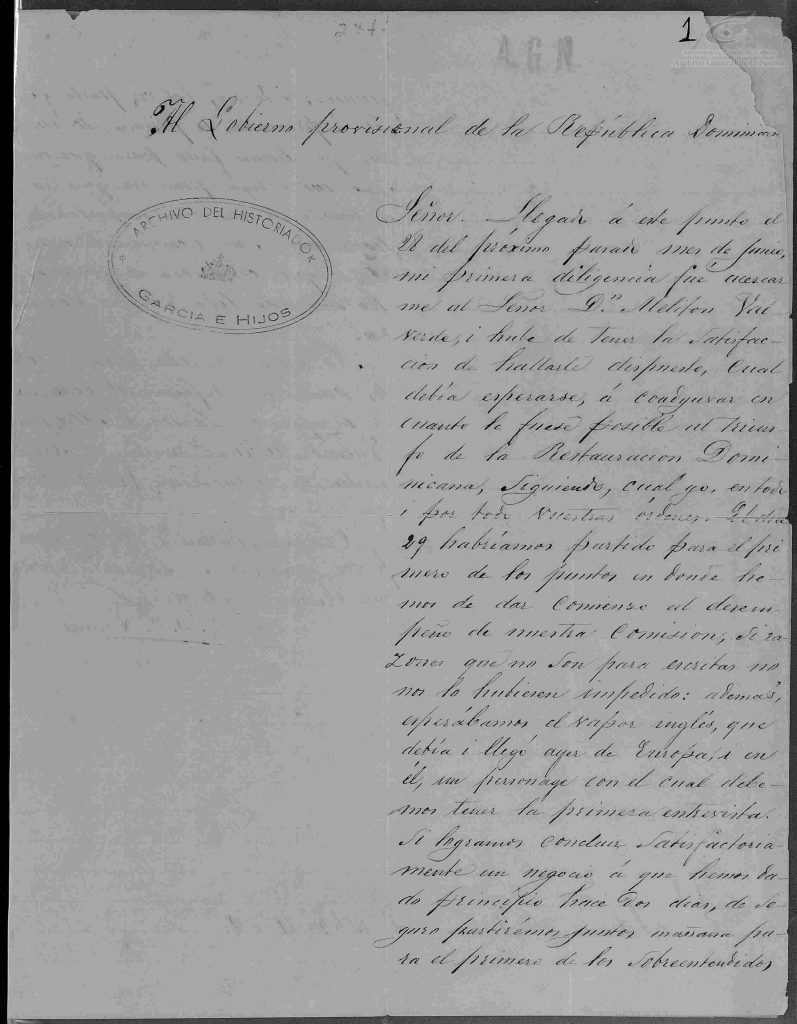 274
A.G.N.
1
Archivo General de la Nación
Al Gobierno provisional de la República Dominican
ARCHIVO DEL HISTORIADOR
GARCIA E HIJOS
Señor. Llegado á este punto el
28 del próximo pasado mes de Junio,
mi primera diligencia fué acercar
me al Señor Dn Meliton Val-
verde, i hube de tener la satisfac-
cion de hallarle dispuesto, cual
debía esperarse, á coadyuvar en
cuanto le fuese posible al triun-
fo de la Restauracion Domi-
nicana, siguiendo, cual yo, en todo
i por todo vuestras órdenes. El dia
29 habríamos partido para el pri
mero de los puntos en donde he-
mos de dar comienzo al desem-
peño de nuestra comision, si ra-
zones que no son para escritas no
nos lo hubiesen impedido: además,
esperábamos el vapor inglés, que
debía i llegó ayer de Europa, i en
él, un personage con el cual debe-
mos tener la primera entrevista.
Si logramos concluir satisfactoria-
mente un negocio á que hemos da-
do principio hace dos dias, de se-
guro partirémos juntos mañana pa-
ra el primero de los sobreentendidos